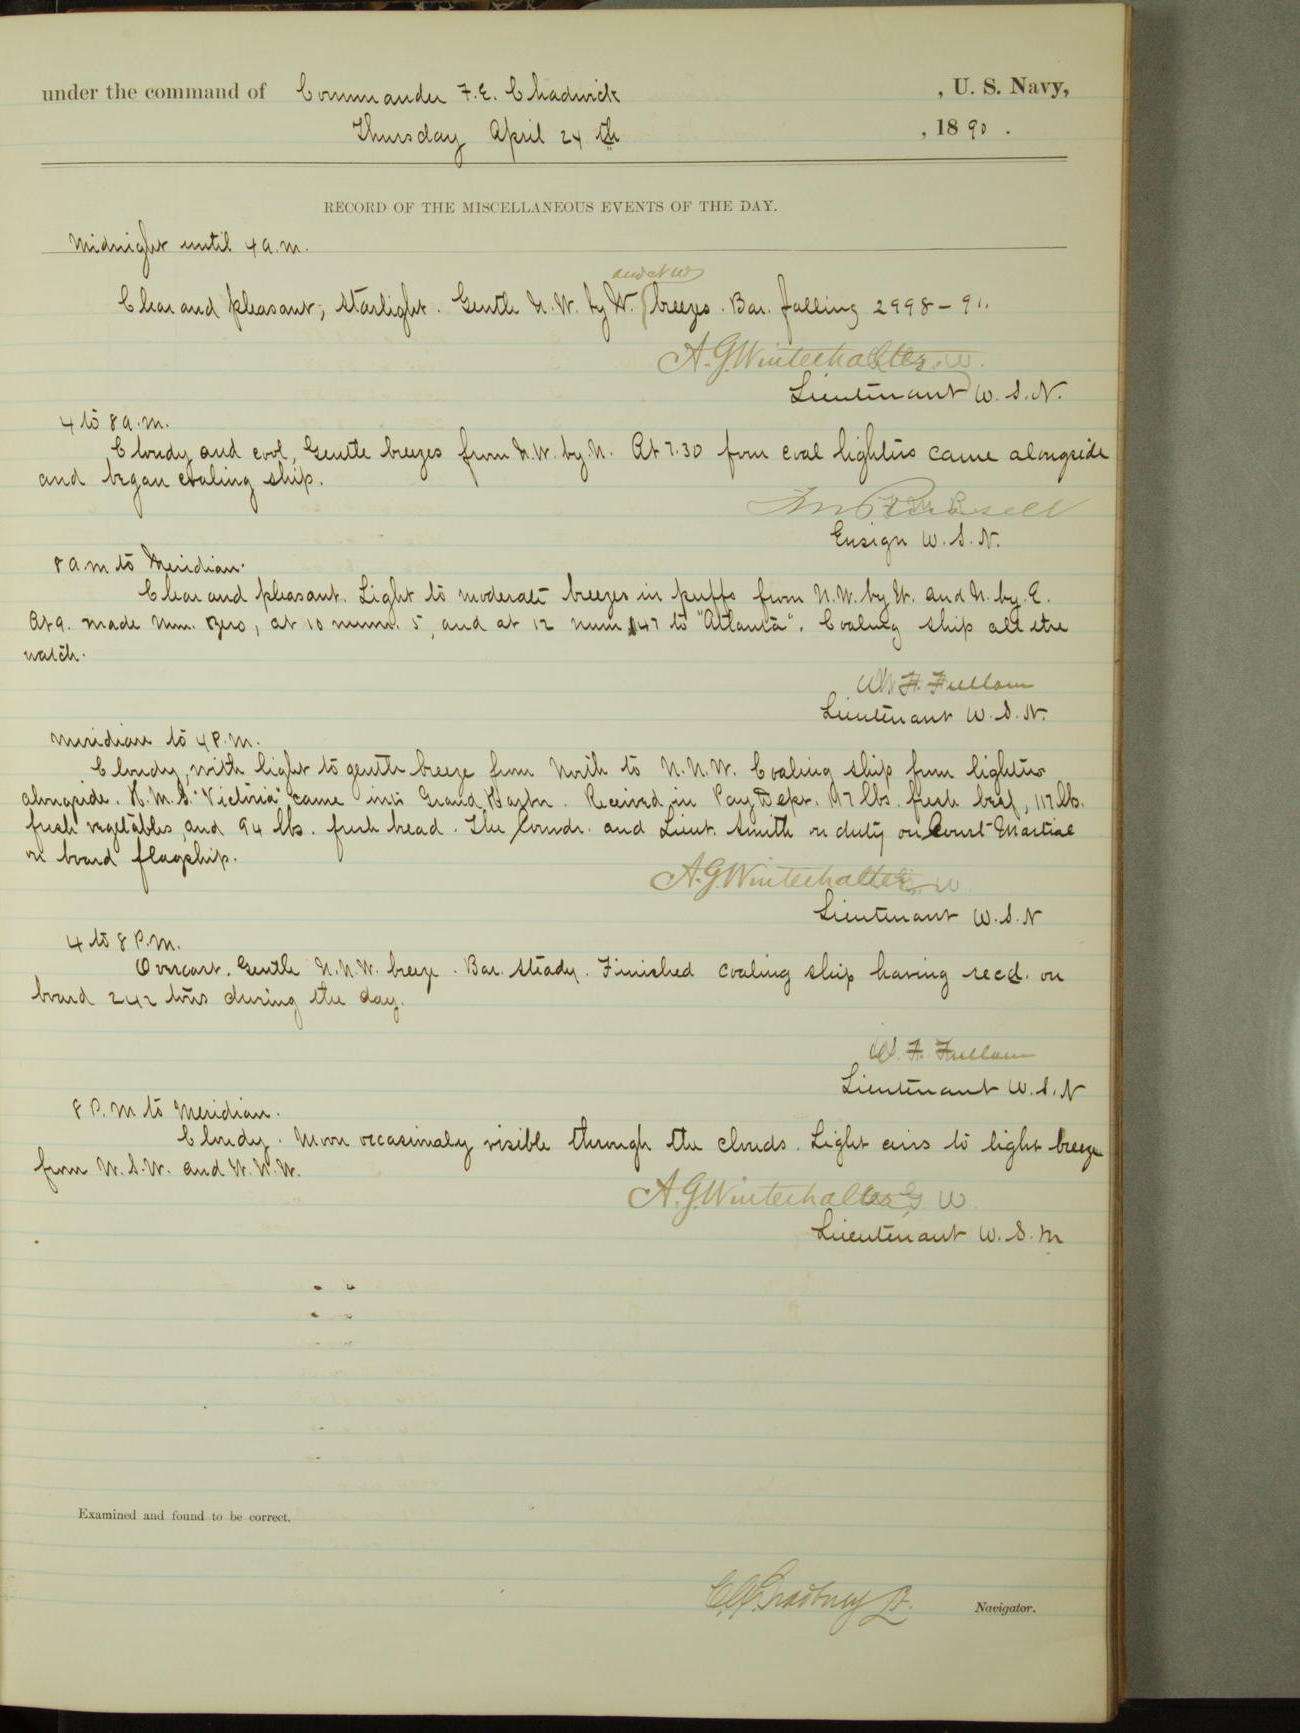 under the command of Commander F. E. Chadwick , U. S. Navy,
Thursday April 24th , 1890 .
RECORD OF THE MISCELLANEOUS EVENTS OF THE DAY.
Midnight until 4 a.m.
and N W
Clear and pleasant; starlight. Gentle N.W. by W. breezes. Bar. falling 2998 - 91.
A. G. Winterhalter
Lieutenant U. S. N.
4 to 8 a.m.
Cloudy and cool, Gentle breezes from N.W. by N. At 7.30 four coal lighters came alongside
and began coaling ship.
Russell
Ensign U. S. N.
8 a m to Meridian.
Clear and pleasant. Light to moderate breezes in puffs from N.W. by W. and N. by E.
At 9. made num. zero, at 10 num. 5, and at 12 num 147 to "Atlanta". Coaling ship all the
watch.
W. F. Fullam
Lieutenant U. S. N.
Meridian to 4 P.M.
Cloudy, with light to gentle breeze from North to N.N.W. Coaling ship from lighters
alongside. H.M.S. "Victoria" came into Grand Harbor. Received in Pay Dept. 117 lbs. fresh beef, 117 lbs.
fresh vegetables and 94 lbs. fresh bread. The Comdr. and Lieut. Smith on duty on Court-Martial
on board flagship.
A. G. Winterhalter
Lieutenant U. S. N
4 to 8 P.M.
Overcast. Gentle N.N.W. breeze. Bar. steady. Finished coaling ship having recd. on
board 242 tons during the day.
W. F. Fullam
Lieutenant U. S. N
8 P. M to Meridian.
Cloudy. Moon occasionaly visible through the clouds. Light airs to light breeze
from W.S.W. and W.N.W.
A. G. Winterhalter
Lieutenant U. S. N
Examined and found to be correct.
Navigator.